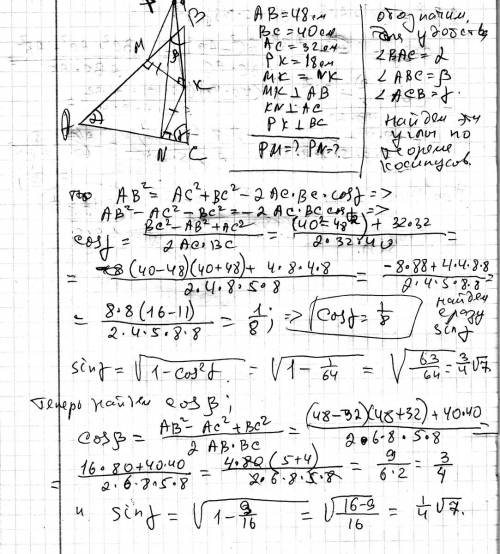 P
B
M
β
K
α
A
γ
N
C
AB = 48 см
BC = 40 см
AC = 32 см
PK = 18 см
MK = NK
MK ⊥ AB
KN ⊥ AC
PK ⊥ BC
PM = ? PN = ?
обозначим,
для удобства
∠BAC = α
∠ABC = β
∠ACB = γ.
Найдем эти
углы по
теореме
косинусов.
AB² = AC² + BC² - 2AC·BC·cosγ =>
AB² - AC² - BC² = -2AC·BC cosγ =>
cosγ = (BC² - AB² + AC²) / (2AC·BC) = ((40² - 48²) + 32·32) / (2·32·40) =
= ((40-48)(40+48) + 4·8·4·8) / (2·4·8·5·8) = (-8·88 + 4·4·8·8) / (2·4·5·8·8) =
= 8·8(16-11) / (2·4·5·8·8) = 1/8; => cosγ = 1/8
найдем
сразу
sinγ
sinγ = √(1 - cos²γ) = √(1 - 1/64) = √(63/64) = 3/4 √7.
Теперь найдем cosβ;
cosβ = (AB² - AC² + BC²) / (2 AB·BC) = ((48-32)(48+32) + 40·40) / (2·6·8·5·8) =
= (16·80 + 40·40) / (2·6·8·5·8) = 4·80(5+4) / (2·6·8·5·8) = 9 / (6·2) = 3/4
и sinγ = √(1 - 9/16) = √((16-9)/16) = 1/4 √7.